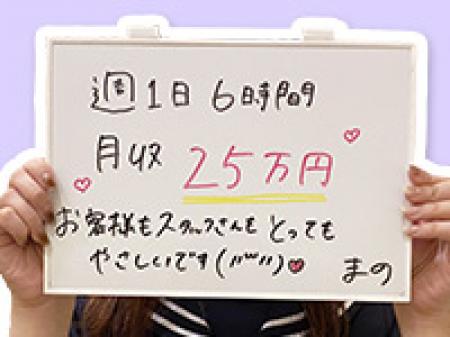 週1日 6時間
月収 25万円
お客様もスタッフさんも とっても
やさしいです(〃ʷ〃)♥ まの